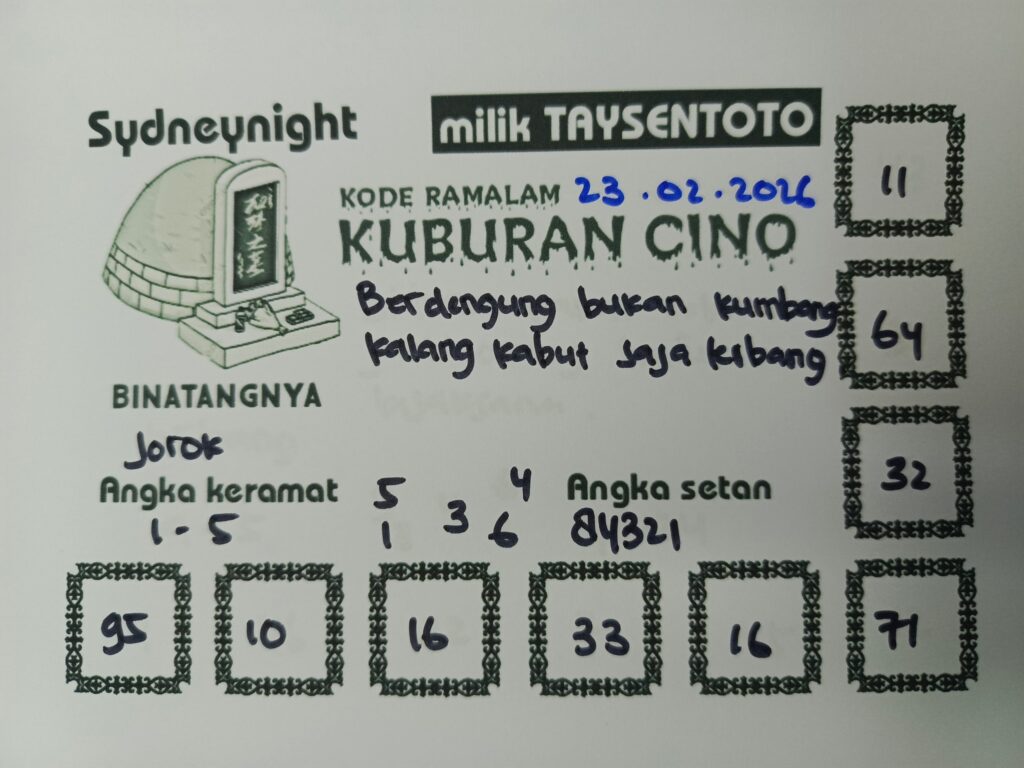 Sydneynight
milik TAYSENTOTO
KODE RAMALAM 23.02.2026
KUBURAN CINO
Berdengung bukan kumbang
kalang kabut saja kibang
BINATANGNYA
Jorok
Angka keramat
1 - 5
5 4
3
1 6
Angka setan
84321
11
64
32
95 10 16 33 16 71